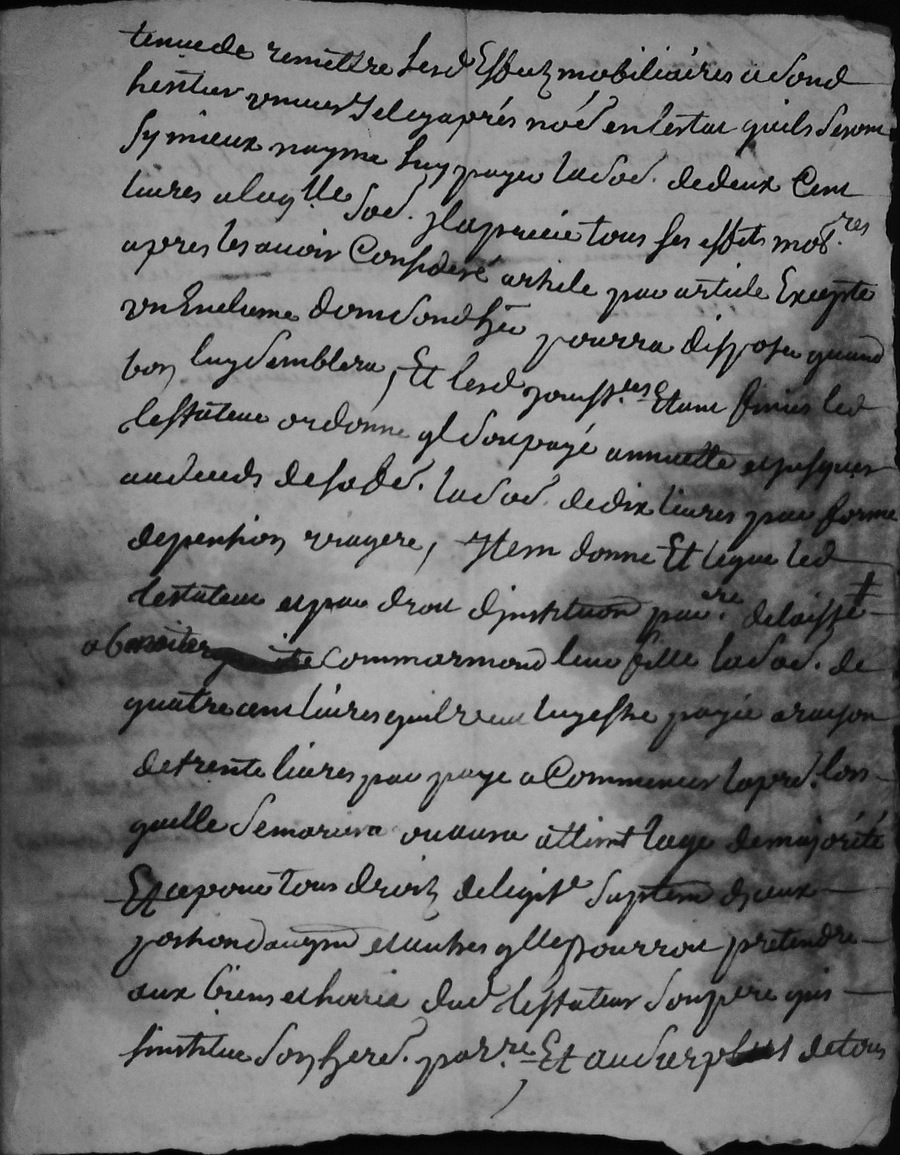 tenue de remettre lesd Effetz mobiliaires a sond
heritier univer et cy aprés noé en lestat quils seront
sy mieux nayme luy payer la sod. de deux Cent
livres a laqlle sod. Il aprecie tous ses effets mobres
apres les avoir Consideré article par article Excepte
un Enclume dont sond her pourra disposer quand
bon luy semblera, Et lesd jouissces Etant finies led
testateur ordonne ql soit payé annuelle et jusques
au deceds de sad. la sod. de dix livres par forme
de pention viagere, Item donne Et legue led
testateur et par droit dinstitution parre. delaisse
a Commarmond leur fille la sod. de
quatre cent livres quil veut luy estre payée a raison
de trente livres par paye a Commencer la pre. lors
quelle se mariera ou aura attint lage de majorité
Et ce pour tous droitz de legite suplem dyceux
portion daugm et autres qlle pourroit pretendre
aux biens et horie dud testateur son pere qui
linstitue son hered. parre. Et au surplus de tous